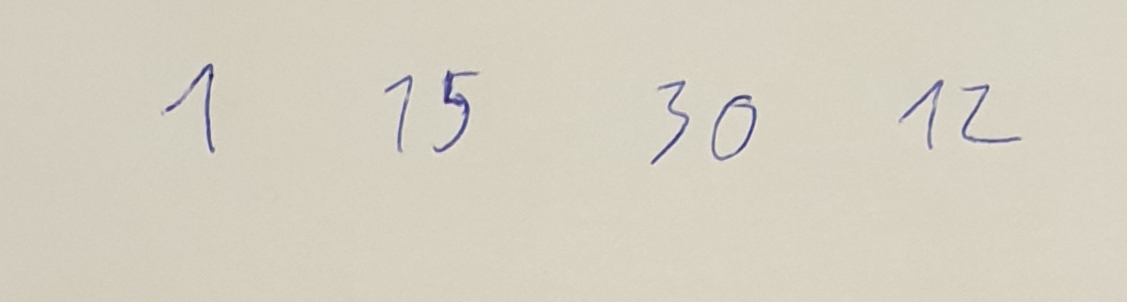 1 15 30 12